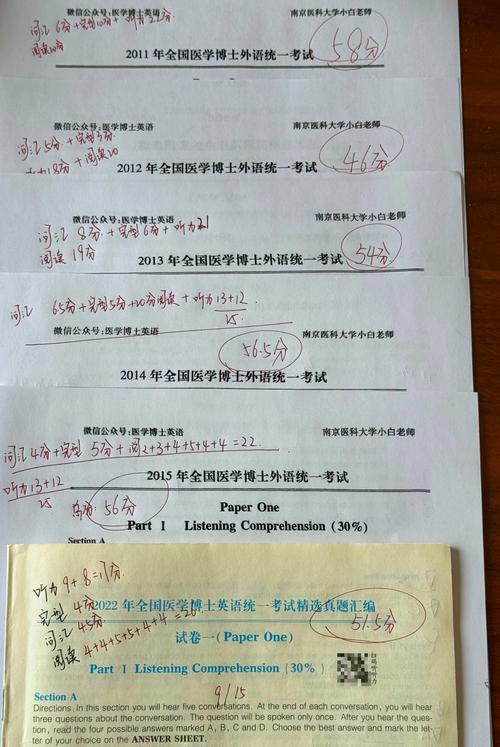 微信公众号:医学博士英语 南京医科大学小白老师
词汇 6分+完型10分+听力22分
阅读20分
58分
2011年全国医学博士外语统一考试
微信公众号:医学博士英语 南京医科大学小白老师
词汇5分+完型3分
听力18分+阅读20
46分
2012年全国医学博士外语统一考试
微信公众号:医学博士英语 南京医科大学小白老师
词汇 8分+完型6分+听力21
阅读 19分
54分
2013年全国医学博士外语统一考试
词汇 6.5分+完型5分+20分阅读+听力13+12
25
微信公众号:医学博士英语 南京医科大学小白老师
56.5分
2014年全国医学博士外语统一考试
微信公众号:医学博士英语 南京医科大学小白老师
词汇4分+完型 5分+阅2+3+4+5+4+4=22
2015年全国医学博士外语统一考试
听力13+12
25
总分:56分
Paper One
Part I Listening Comprehension (30%)
Section A
听力9+8=17分
完型4分
2022年全国医学博士英语统一考试精选真题汇编
51.5分
词汇4.5分
试卷一(Paper One)
阅读 4+4+5+5+4+4=26
扫码听听力
Part I Listening Comprehension (30%)
9/15
Section A
Directions: In this section you will hear five conversations. At the end of each conversation, you will hear
three questions about the conversation. The question will be spoken only once. After you hear the ques-
tion, read the four possible answers marked A, B, C and D. Choose the best answer and mark the let-
ter of your choice on the ANSWER SHEET.